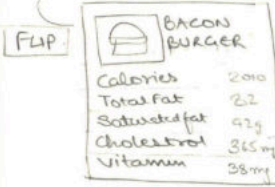 FLIP
BACON
BURGER
Calories 2010
Total Fat 22
Saturated fat 42g
Cholestrol 365 mg
Vitamin 38mg